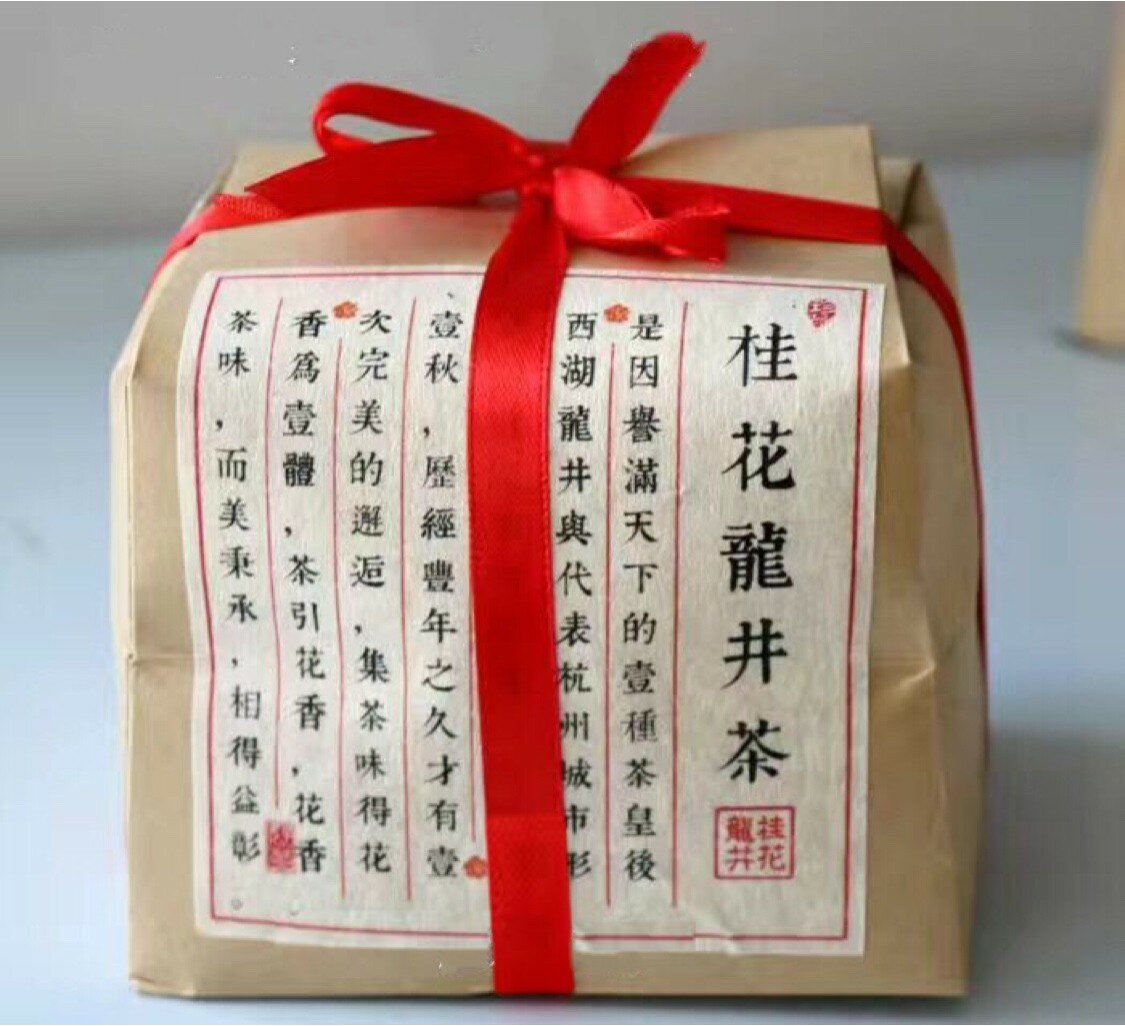 桂花龍井茶
桂花
龍井
是因譽滿天下的壹種茶皇後
西湖龍井與代表杭州城市形
壹秋，歷經豐年之久才有壹
次完美的邂逅，集茶味得花
香爲壹體，茶引花香，花香
茶味，而美秉承，相得益彰